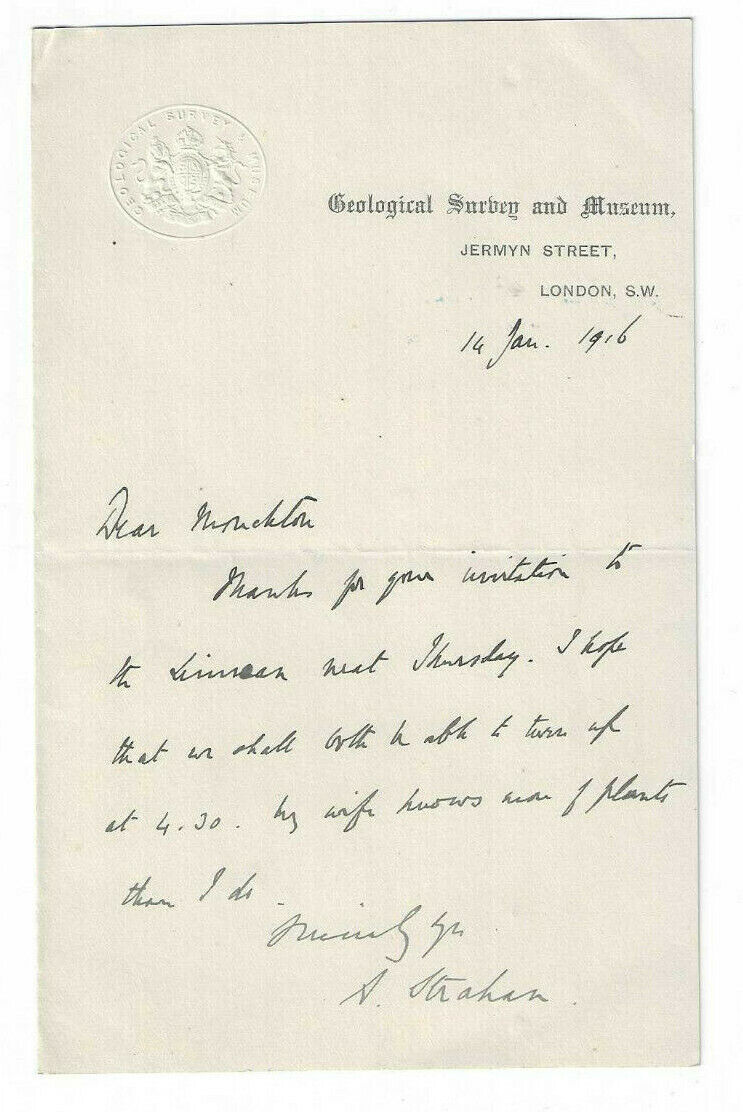 GEOLOGICAL SURVEY & MUSEUM
Geological Survey and Museum,
JERMYN STREET,
LONDON, S.W.
14 Jan. 1916
Dear Monckton
Thanks for your invitation to
the Linnean next Thursday. I hope
that we shall both be able to turn up
at 4.30. My wife knows more of plants
than I do.
Sincerely yrs
A. Strahan.